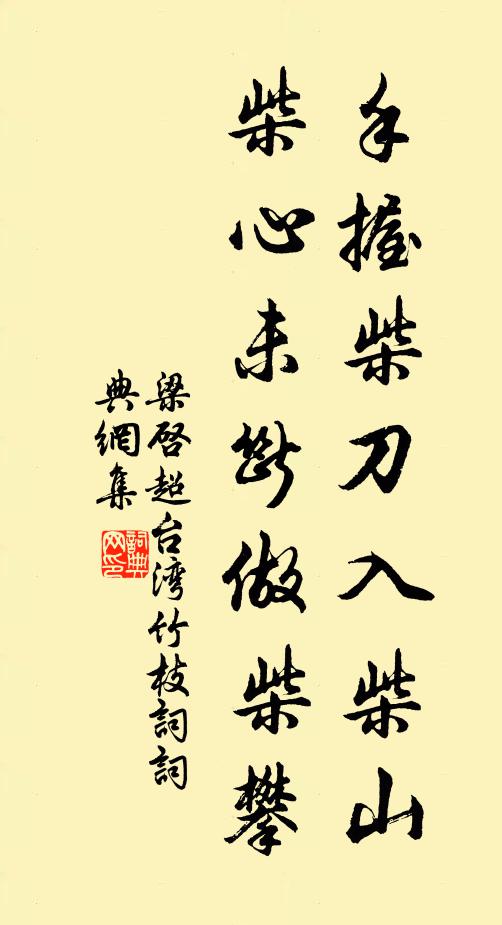 手握柴刀入柴山
柴心未断做柴攀
梁启超台湾竹枝詞詞
典網集
詞典
网印